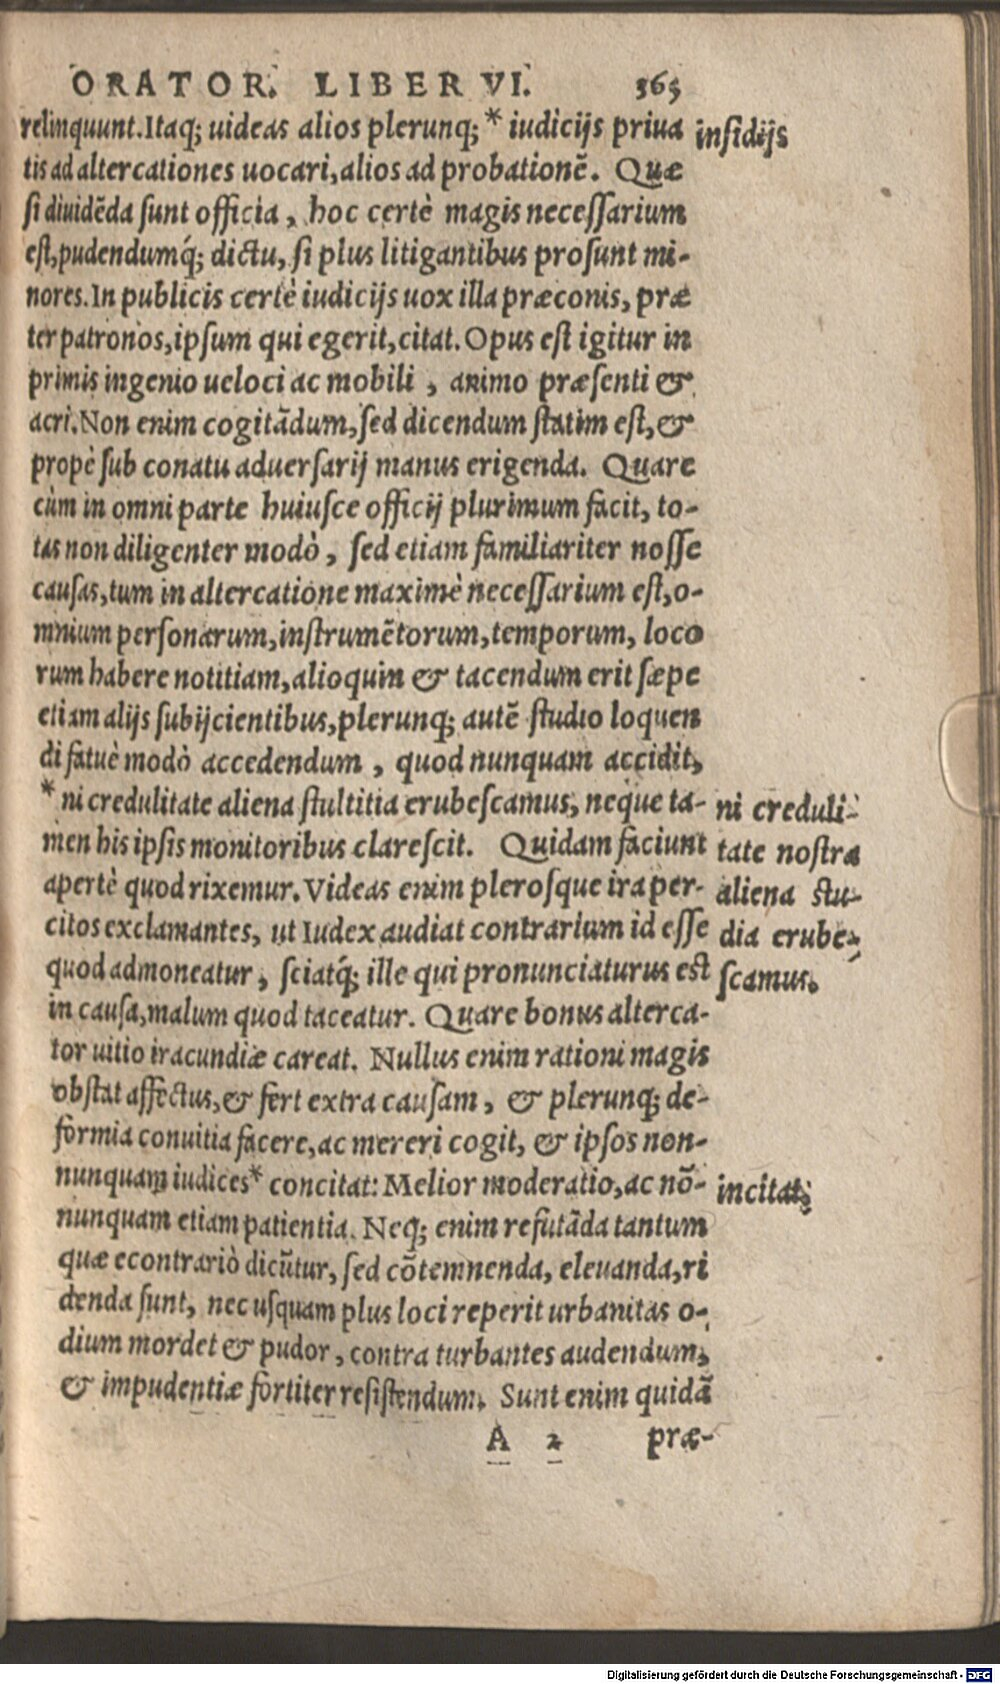 ORATOR. LIBER VI. 365
relinquunt. Itaq; uideas alios plerunq; * iudicijs priua
insidijs
tis ad altercationes uocari, alios ad probationẽ. Quæ
si diuidẽda sunt officia, hoc certè magis necessarium
est, pudendumq́; dictu, si plus litigantibus prosunt mi-
nores. In publicis certè iudicijs uox illa præconis, præ
ter patronos, ipsum qui egerit, citat. Opus est igitur in
primis ingenio ueloci ac mobili, animo præsenti &
acri. Non enim cogitãdum, sed dicendum statim est, &
propè sub conatu aduersarij manus erigenda. Quare
cùm in omni parte huiusce officij plurimum facit, to-
tas non diligenter modò, sed etiam familiariter nosse
causas, tum in altercatione maximè necessarium est, o-
mnium personarum, instrumẽtorum, temporum, loco
rum habere notitiam, alioquin & tacendum erit sæpe
etiam alijs subijcientibus, plerunq; autẽ studio loquen
di fatuè modò accedendum, quod nunquam accidit,
* ni credulitate aliena stultitia erubescamus, neque ta-
ni creduli-
men his ipsis monitoribus clarescit. Quidam faciunt
tate nostra
apertè quod rixemur. Videas enim plerosque ira per-
aliena stu-
citos exclamantes, ut Iudex audiat contrarium id esse
dia erube-
quod admoneatur, sciatq́; ille qui pronunciaturus est
scamus.
in causa, malum quod taceatur. Quare bonus alterca-
tor uitio iracundiæ careat. Nullus enim rationi magis
obstat affectus, & fert extra causam, & plerunq; de-
formia conuitia facere, ac mereri cogit, & ipsos non-
nunquam iudices * concitat: Melior moderatio, ac nõ-
incitat;
nunquam etiam patientia. Neq; enim refutãda tantum
quæ econtrariò dicũtur, sed cõtemnenda, eleuanda, ri
denda sunt, nec usquam plus loci reperit urbanitas o-
dium mordet & pudor, contra turbantes audendum,
& impudentiæ fortiter resistendum. Sunt enim quidã
A 2 præ-
Digitalisierung gefördert durch die Deutsche Forschungsgemeinschaft - DFG